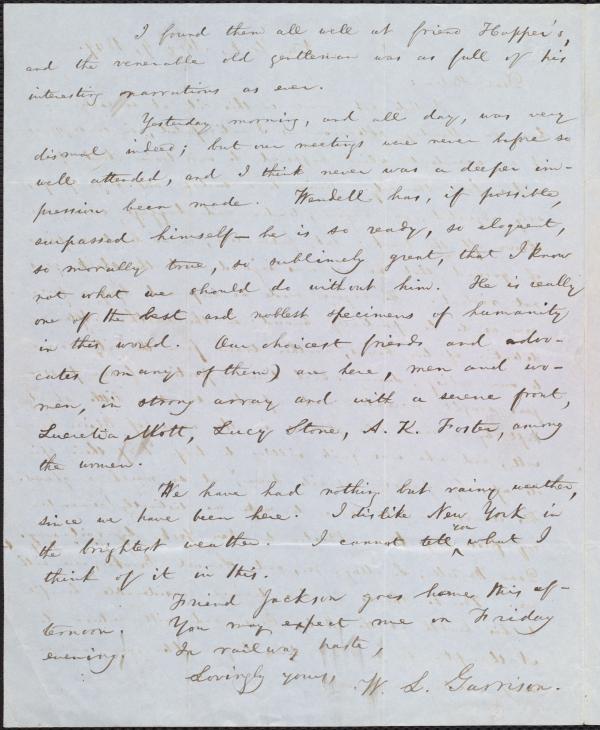 I found them all well at friend Hopper's,
and the venerable old gentleman was as full of his
interesting narrations as ever.
Yesterday morning, and all day, was very
dismal indeed; but our meetings were never before so
well attended, and I think never was a deeper im-
pression been made. Wendell has, if possible,
surpassed himself—he is so ready, so eloquent,
so morally true, so sublimely great, that I know
not what we should do without him. He is really
one of the best and noblest specimens of humanity
in this world. Our choicest friends and advo-
cates (many of them) are here, men and wo-
men, in strong array and with a serene front,
Lucretia Mott, Lucy Stone, A. K. Foster, among
the women.
We have had nothing but rainy weather,
since we have been here. I dislike New York in
the brightest weather. I cannot tell you what I
think of it in this.
Friend Jackson goes home this af-
ternoon. You may expect me on Friday
evening. In railway haste,
Lovingly yours,
W. L. Garrison.